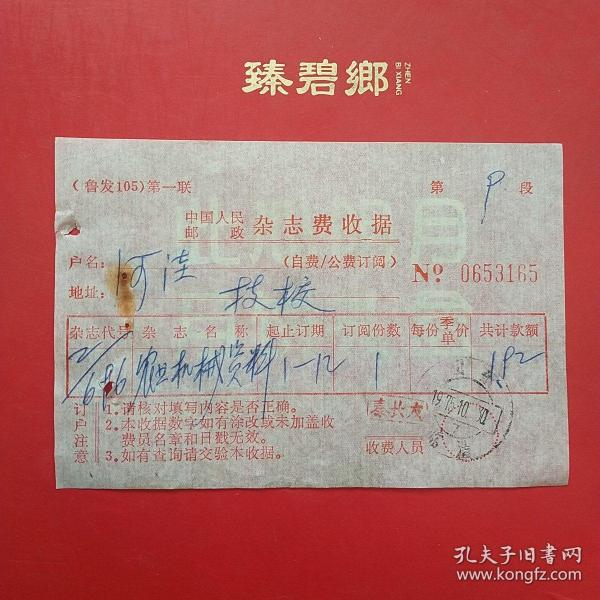 臻碧鄉 ZHEN BI XIANG
（鲁发105）第一联
第 段
中国人民邮政 杂志费收据
户名：河洼 （自费/公费订阅）
№ 0653165
地址：技校
杂志代号 杂志名称 起止订期 订阅份数 每份季单价 共计款额
2/686 农业机械资料 1-12 1 1.92
订户注意
1.请核对填写内容是否正确。
2.本收据数字如有涂改或未加盖收费员名章和日戳无效。
3.如有查询请交验本收据。
收费人员
孔夫子旧书网
www.kongfz.com